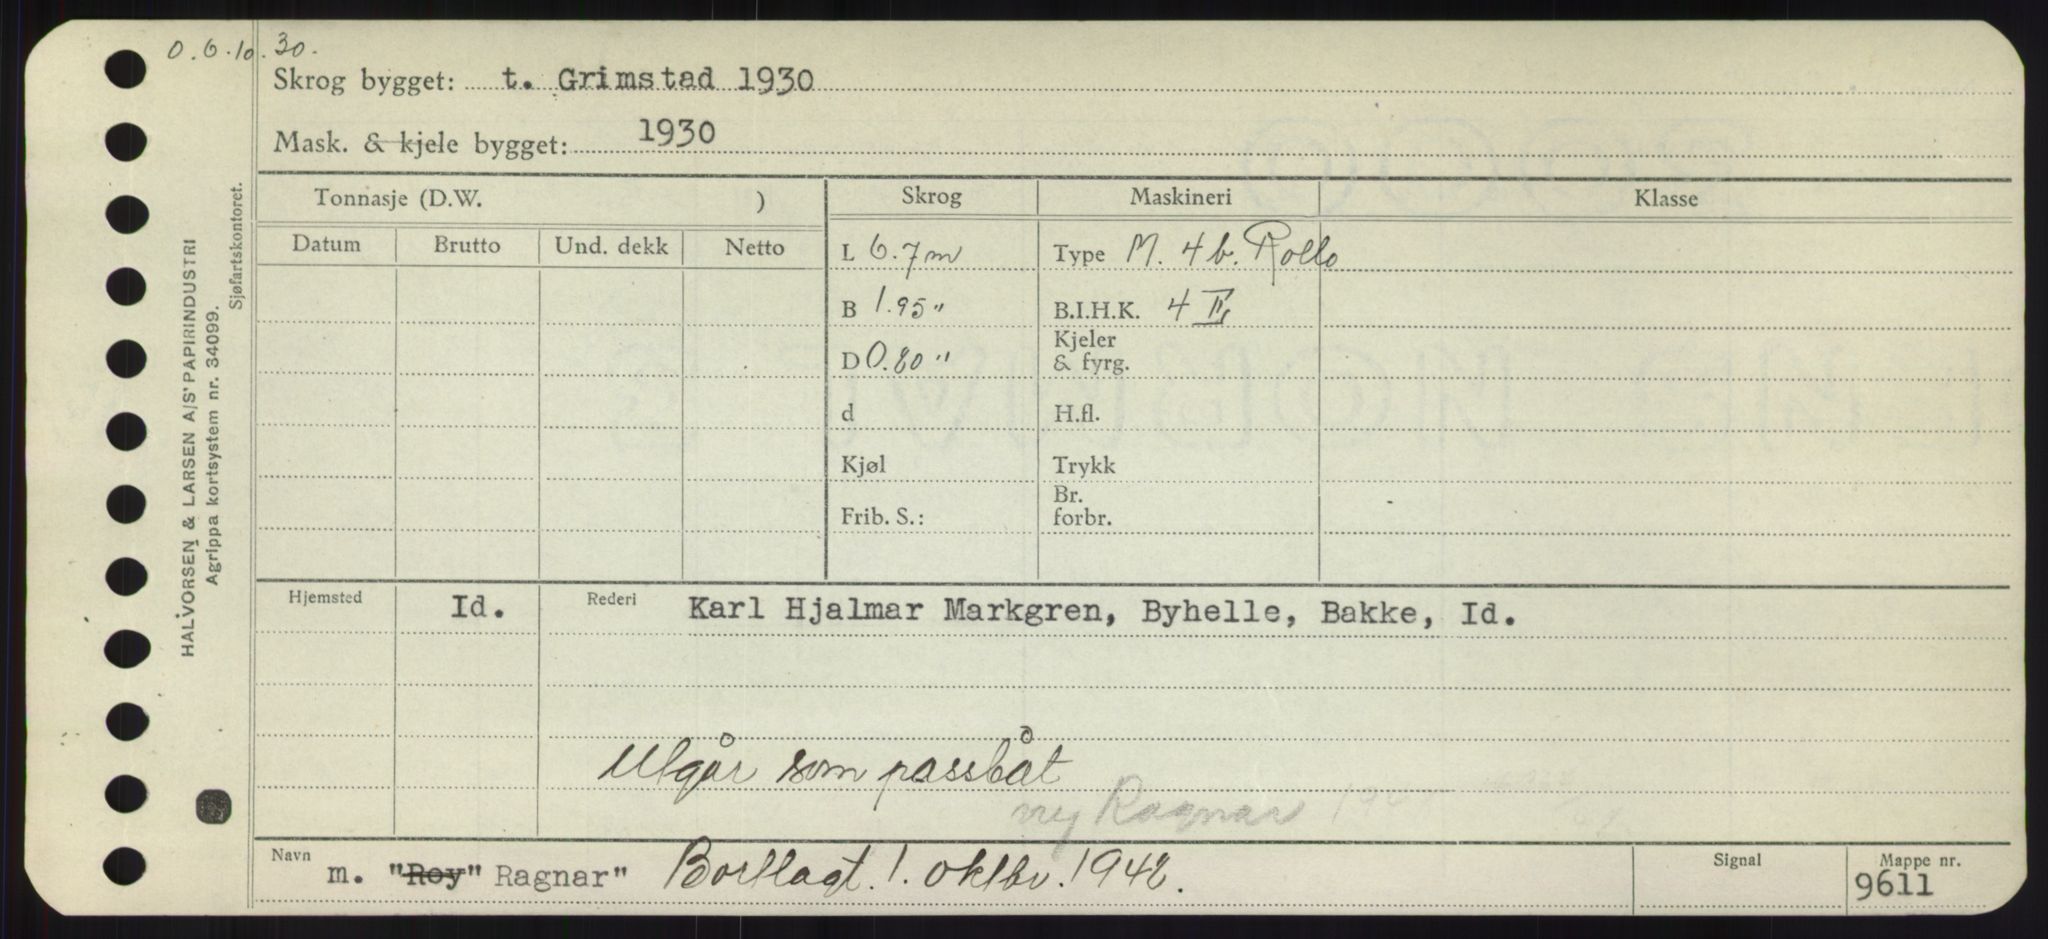 O. 6.10.30.
Skrog bygget: t. Grimstad 1930
Mask. & kjele bygget: 1930
HALVORSEN & LARSEN A/S' PAPIRINDUSTRI
Agrippa kortsystem nr. 34099.
Sjøfartskontoret.
Tonnasje (D.W. ) Skrog Maskineri Klasse
Datum Brutto Und. dekk Netto
L 6.7 m Type M. 4 b. Rollo
B 1.95 " B.I.H.K. 4 II
D 0.80 " Kjeler
& fyrg.
d H.fl.
Kjøl Trykk
Frib. S.: Br.
forbr.
Hjemsted Id. Rederi Karl Hjalmar Markgren, Byhelle, Bakke, Id.
Utgår som passbåt
ny Ragnar
Navn m. "Roy" Ragnar" Bortlagt. 1. oktbr. 1942. Signal Mappe nr.
9611